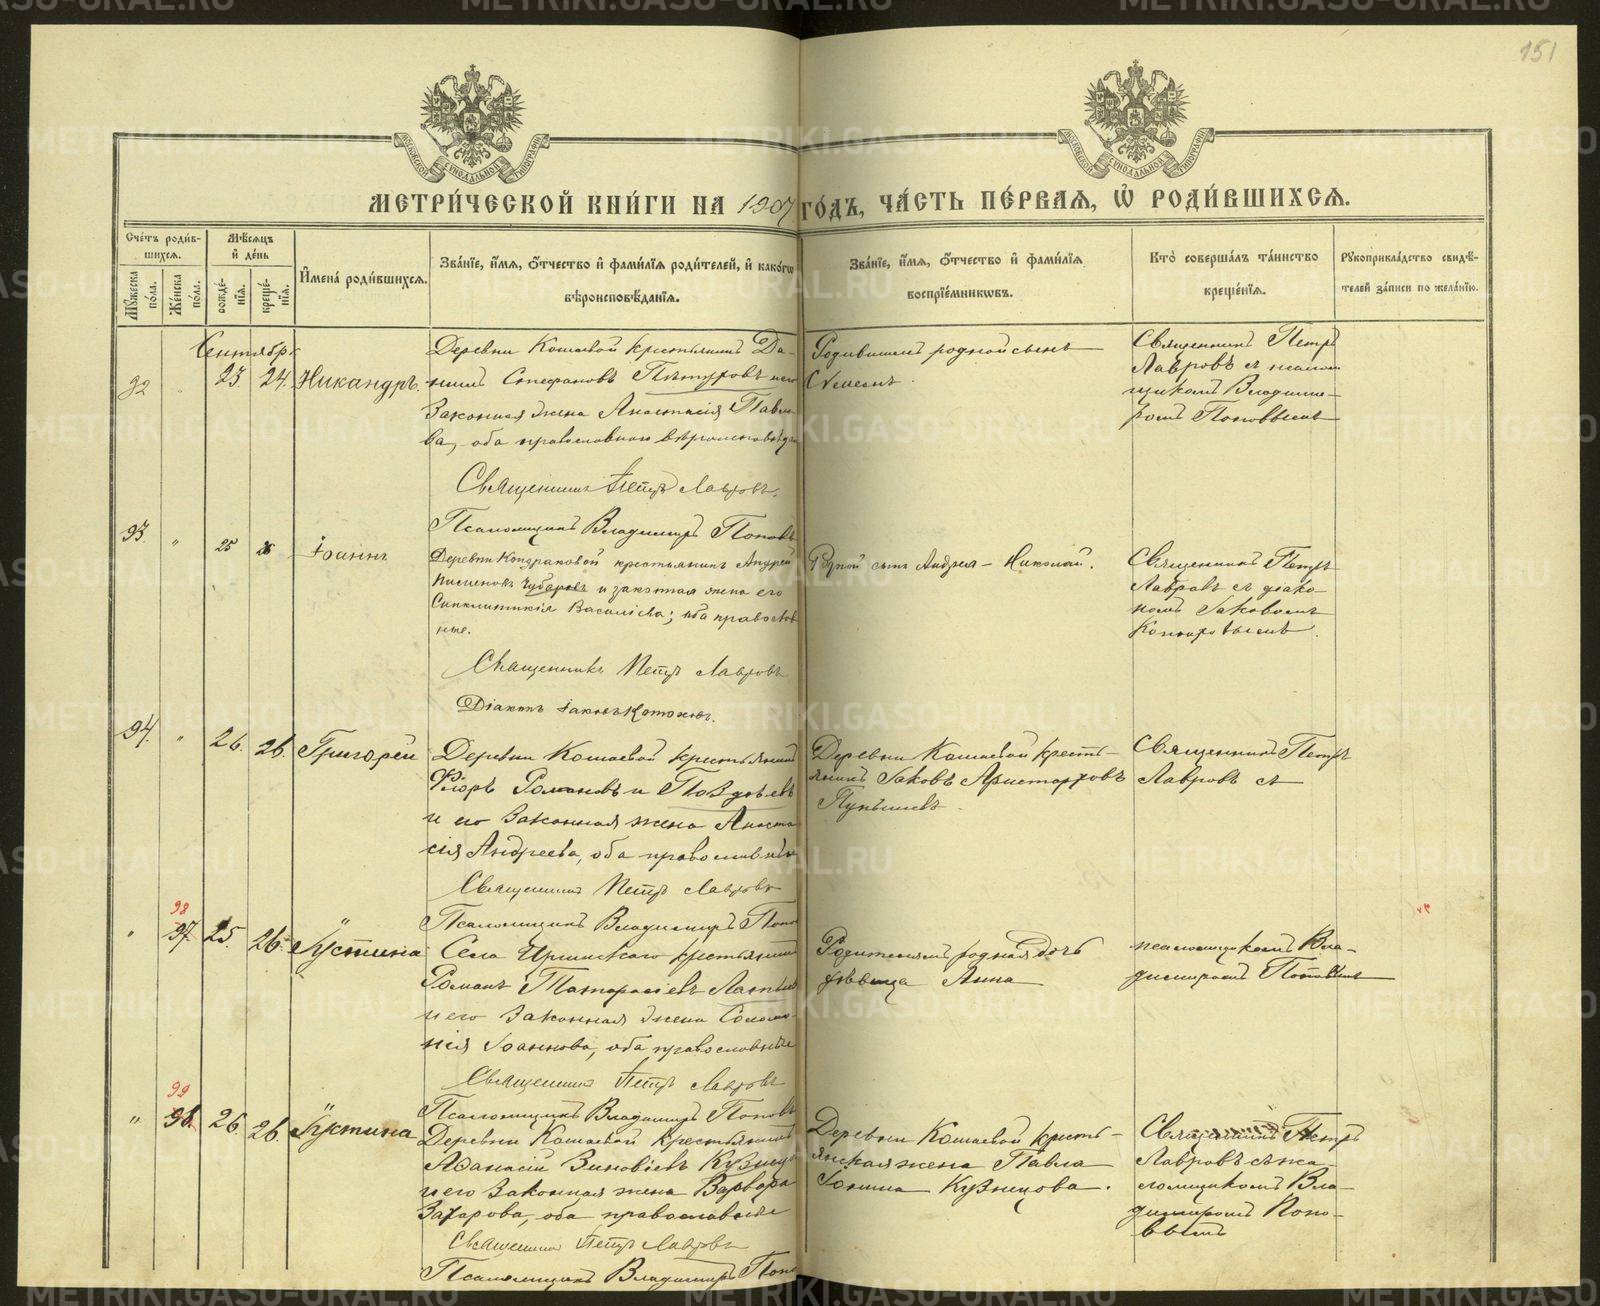 151
МЕТРИ́ЧЕСКОЙ КНИ́ГИ НА 1907 ГО́ДЪ, ЧА́СТЬ ПЕ́РВАЯ, Ѽ РОДИ́ВШИХСЯ.
Сче́тъ роди́вшихся.
Мꙋ́жеска по́ла.
Же́нска по́ла.
Мѣ́сяцъ и҆ де́нь
рожде́нїя.
креще́нїя.
И҆мена̀ роди́вшихся.
Зва́нїе, и҆́мя, ѻ҆́тчество и҆ фами́лїя роди́телей, и҆ како́гѡ
вѣроисповѣ́данїя.
Зва́нїе, и҆́мя, ѻ҆́тчество и҆ фами́лїя
воспрїе́мникѡвъ.
Кто̀ соверша́лъ та́инство
креще́нїя.
Рꙋкоприкла́дство свидѣ́-
телей за́писи по жела́нїю.
Сентябрь
92 " 23 24. Никандръ.
Деревни Кошаевой крестьянинъ Да-
нiилъ Стефановъ и его
законная жена Анастасiя Павло-
ва, оба православного вѣроисповѣда
Священникъ Петръ Лавровъ.
Псаломщикъ Владимиръ Поповъ
Родившемъ родной сынъ
Священникъ Петръ
Лавровъ съ псалом
щикомъ Владими-
ромъ Поповымъ
93. " 25 26 Iоаннъ
Деревни Кондраковой крестьянинъ Андрей
Чубаровъ и законная жена его
Синклитикiя Василiева; оба православ
ные.
Священникъ Петръ Лавровъ
Дiаконъ Iаковъ
Родной сынъ Андрея – Николай.
Священникъ Петръ
Лавровъ съ дiако-
номъ Iаковомъ
94. " 26. 26. Григорiй
Деревни Кошаевой крестьянинъ
Флоръ Романовъ
и его законная жена Анаста
сiя Андреева, оба православные
Священникъ Петръ Лавровъ
Псаломщикъ Владимиръ Попо
Деревни Кошаевой кресть-
янинъ Iаковъ Аристарховъ
Священникъ Петръ
Лавровъ съ
98
" 97. 25. 26. Iустина
Села крестьянинъ
Романъ
и его законная жена Соломо-
нiя Iоаннова, оба православные
Священникъ Петръ Лавровъ
Псаломщикъ Владимиръ Поповъ
Родителямъ родная дочь
дѣвица Анна
псаломщикомъ Вла-
димиромъ Поповымъ
99
" 98. 26. 26. Iустина
Деревни Кошаевой крестьянинъ
Афанасiй Зиновiевъ Кузнецо
и его законная жена Варвара
Захарова, оба православные
Священникъ Петръ Лавровъ
Псаломщикъ Владимиръ Попо
Деревни Кошаевой кресть-
янская жена Павла
Iонина Кузнецова.
Священникъ Петръ
Лавровъ съ пса-
ломщикомъ Вла-
димиромъ Попо-
вымъ
METRIKI.GASO-URAL.RU